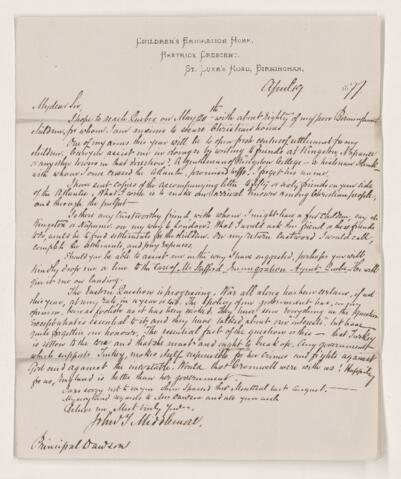 CHILDREN'S EMIGRATION HOME,
CRESCENT,
ST. LUKE'S ROAD, BIRMINGHAM,
April 19 1877
My dear Sir,
I hope to reach Quebec on May 20th with about eighty of my poor Birmingham
children, for whom I am anxious to share Christian homes
One of my aims this year will be to open fresh centres of settlement for my
children. Could you assist me in doing so by writing to friends at Kingston, Napanee
or any other towns in that direction? A gentleman of Kingston College
with whom I once crossed the Atlantic promised help. I forget his name.
I have sent copies of the accompanying letter to fifty or sixty friends on your side
of the Atlantic. What I wish is to make our arrival known among Christian people,
and through the pulpit
Is there any trustworthy friend with whom I might leave a few children, say at
Kingston or Napanee on my way to London? That I would ask her friend or these friends
too, would be to find settlements for the children. On my return Eastward I would call,
complete the settlements, and pay expenses.
Should you be able to assist me in the way I have suggested, perhaps you will
kindly drop me a line to the Care of Mr Stafford, Immigration Agent, Quebec for will
give it me on landing.
The Eastern Question is progressing. War all along has been certain, if not
this year, at any rate in a year or two. The policy of our government has, in my
opinion, been as foolish as it has been wicked. They have seen everything in the question
except what is essential to it and they have talked about our interests, but have
quite forgotten our honour. The essential fact of the question is this – that Turkey
is rotten to the core and that she must and ought to break up. Any government
which supports Turkey, makes itself responsible for her crimes and fights against
God and against the inevitable. Would that Cromwell were with us! Happily
for us, England is better than her government.
I was sorry not to enjoy their spared thro Montreal last August.
My very kind regards to Mrs Dawson and all your circle
Believe me, Most truly Yours,
John T. Middlemore.
Principal Dawson